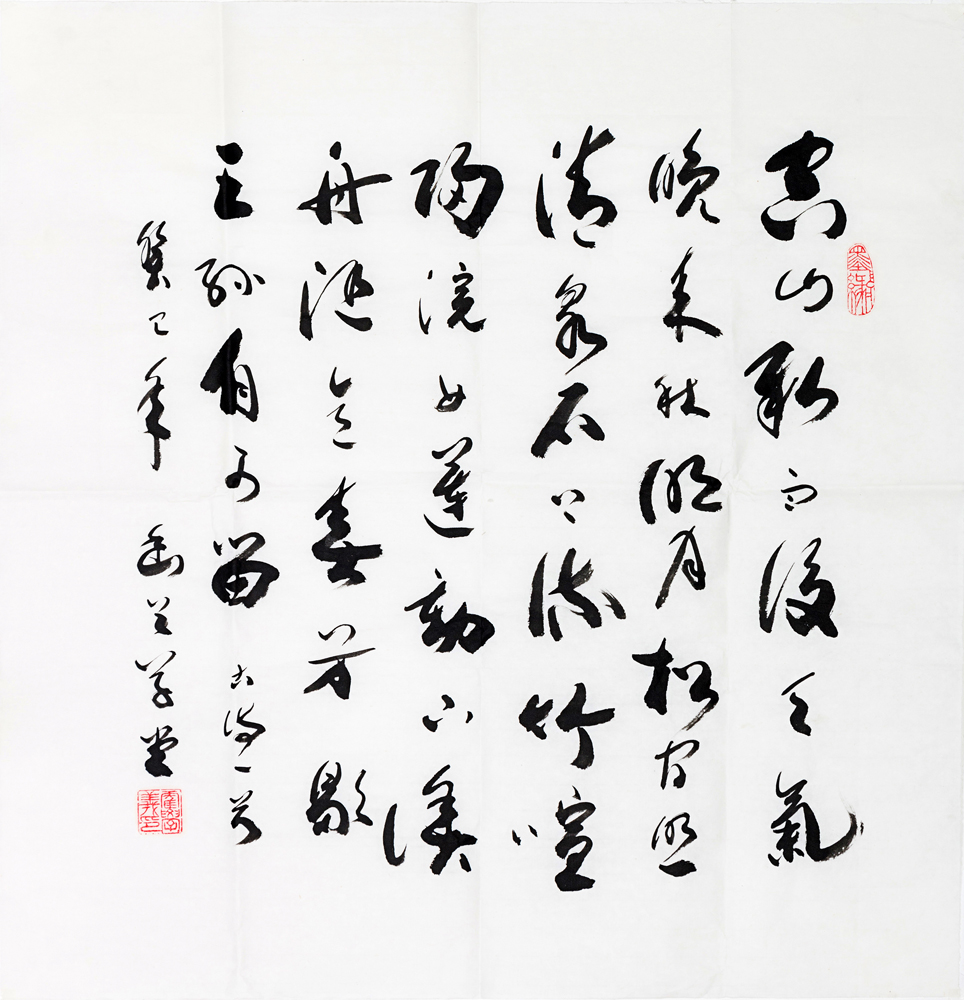 空山新雨後天氣
晚来秋明月松間照
清泉石上流竹喧
歸浣女蓮動下漁
舟隨意春芳歇
王孫自可留 古詩一首
癸巳年 幽兰草堂